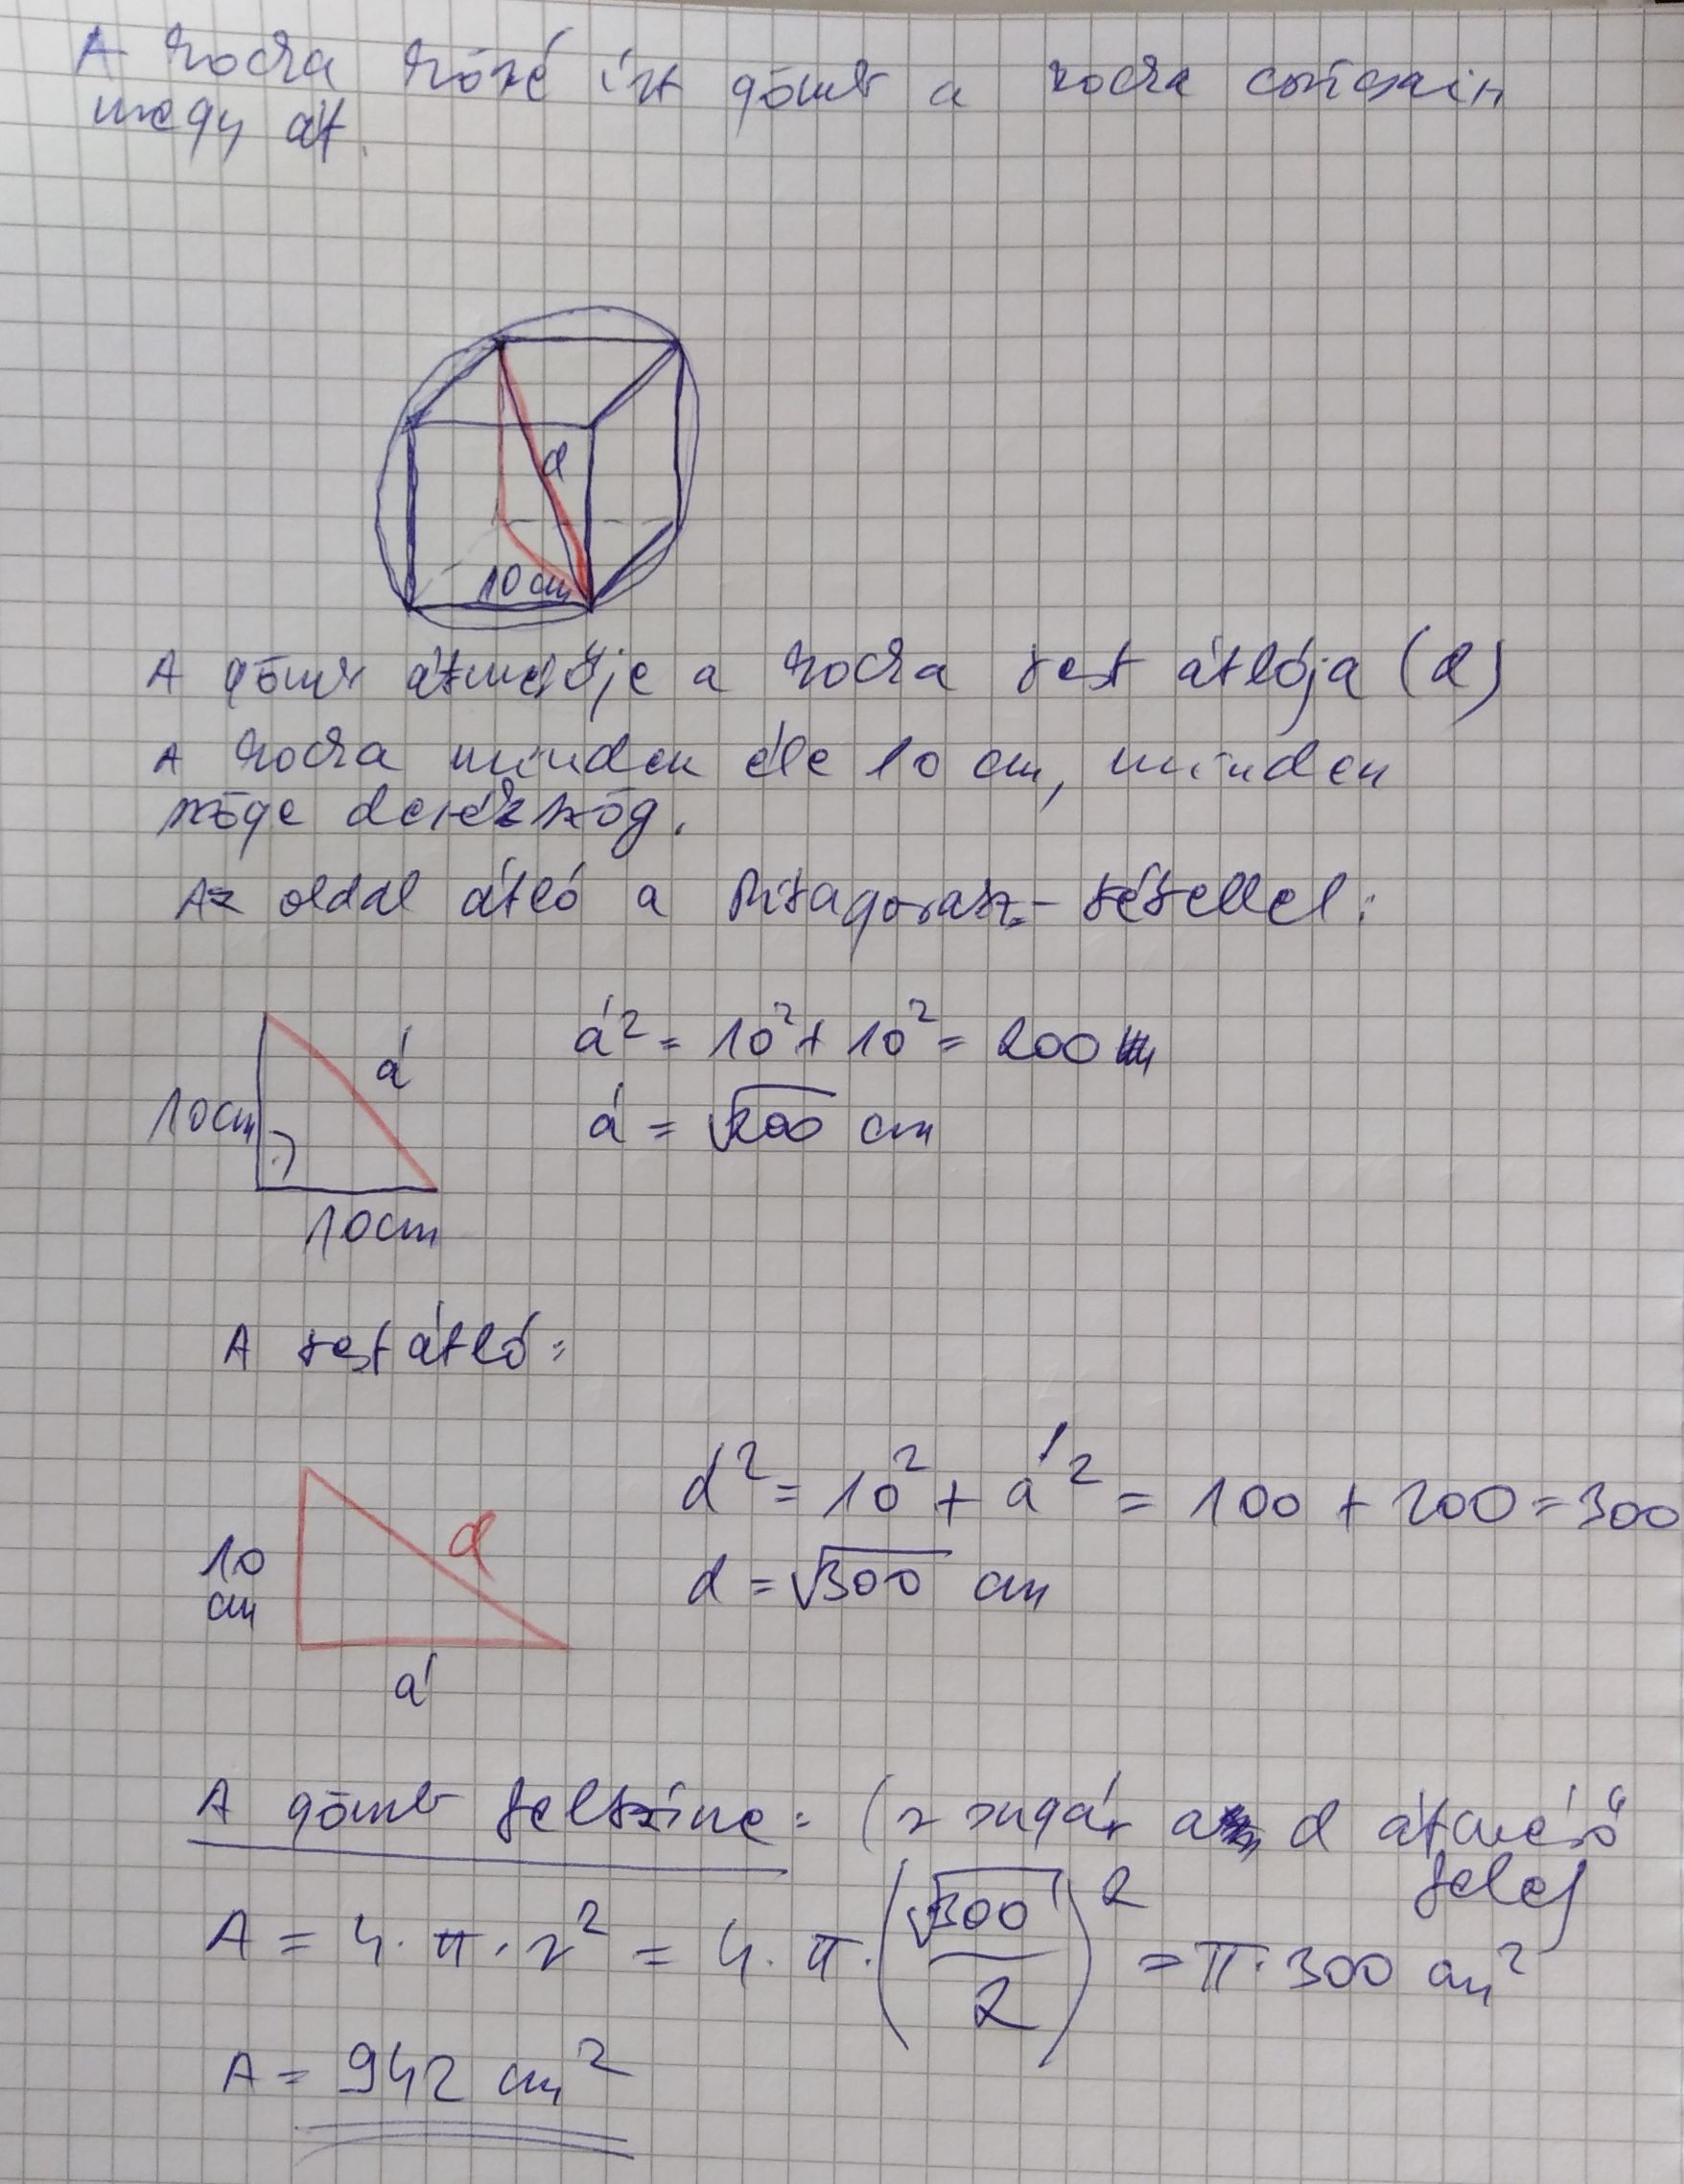 A kocka köré írt gömb a kocka csúcsain
megy át.
d
10 cm
A gömb átmérője a kocka test átlója (d)
A kocka minden éle 10 cm, minden
szöge derékszög.
Az oldal átló a Pitagorasz-tétellel:
á
á² = 10² + 10² = 200
10cm
á = √200 cm
10cm
A test átló:
d² = 10² + á² = 100 + 200 = 300
d
10
cm
d = √300 cm
á
A gömb felszíne: (r sugár a d átmérő
fele)
A = 4·π·r² = 4·π·(√300/2)² = π·300 cm²
A = 942 cm²